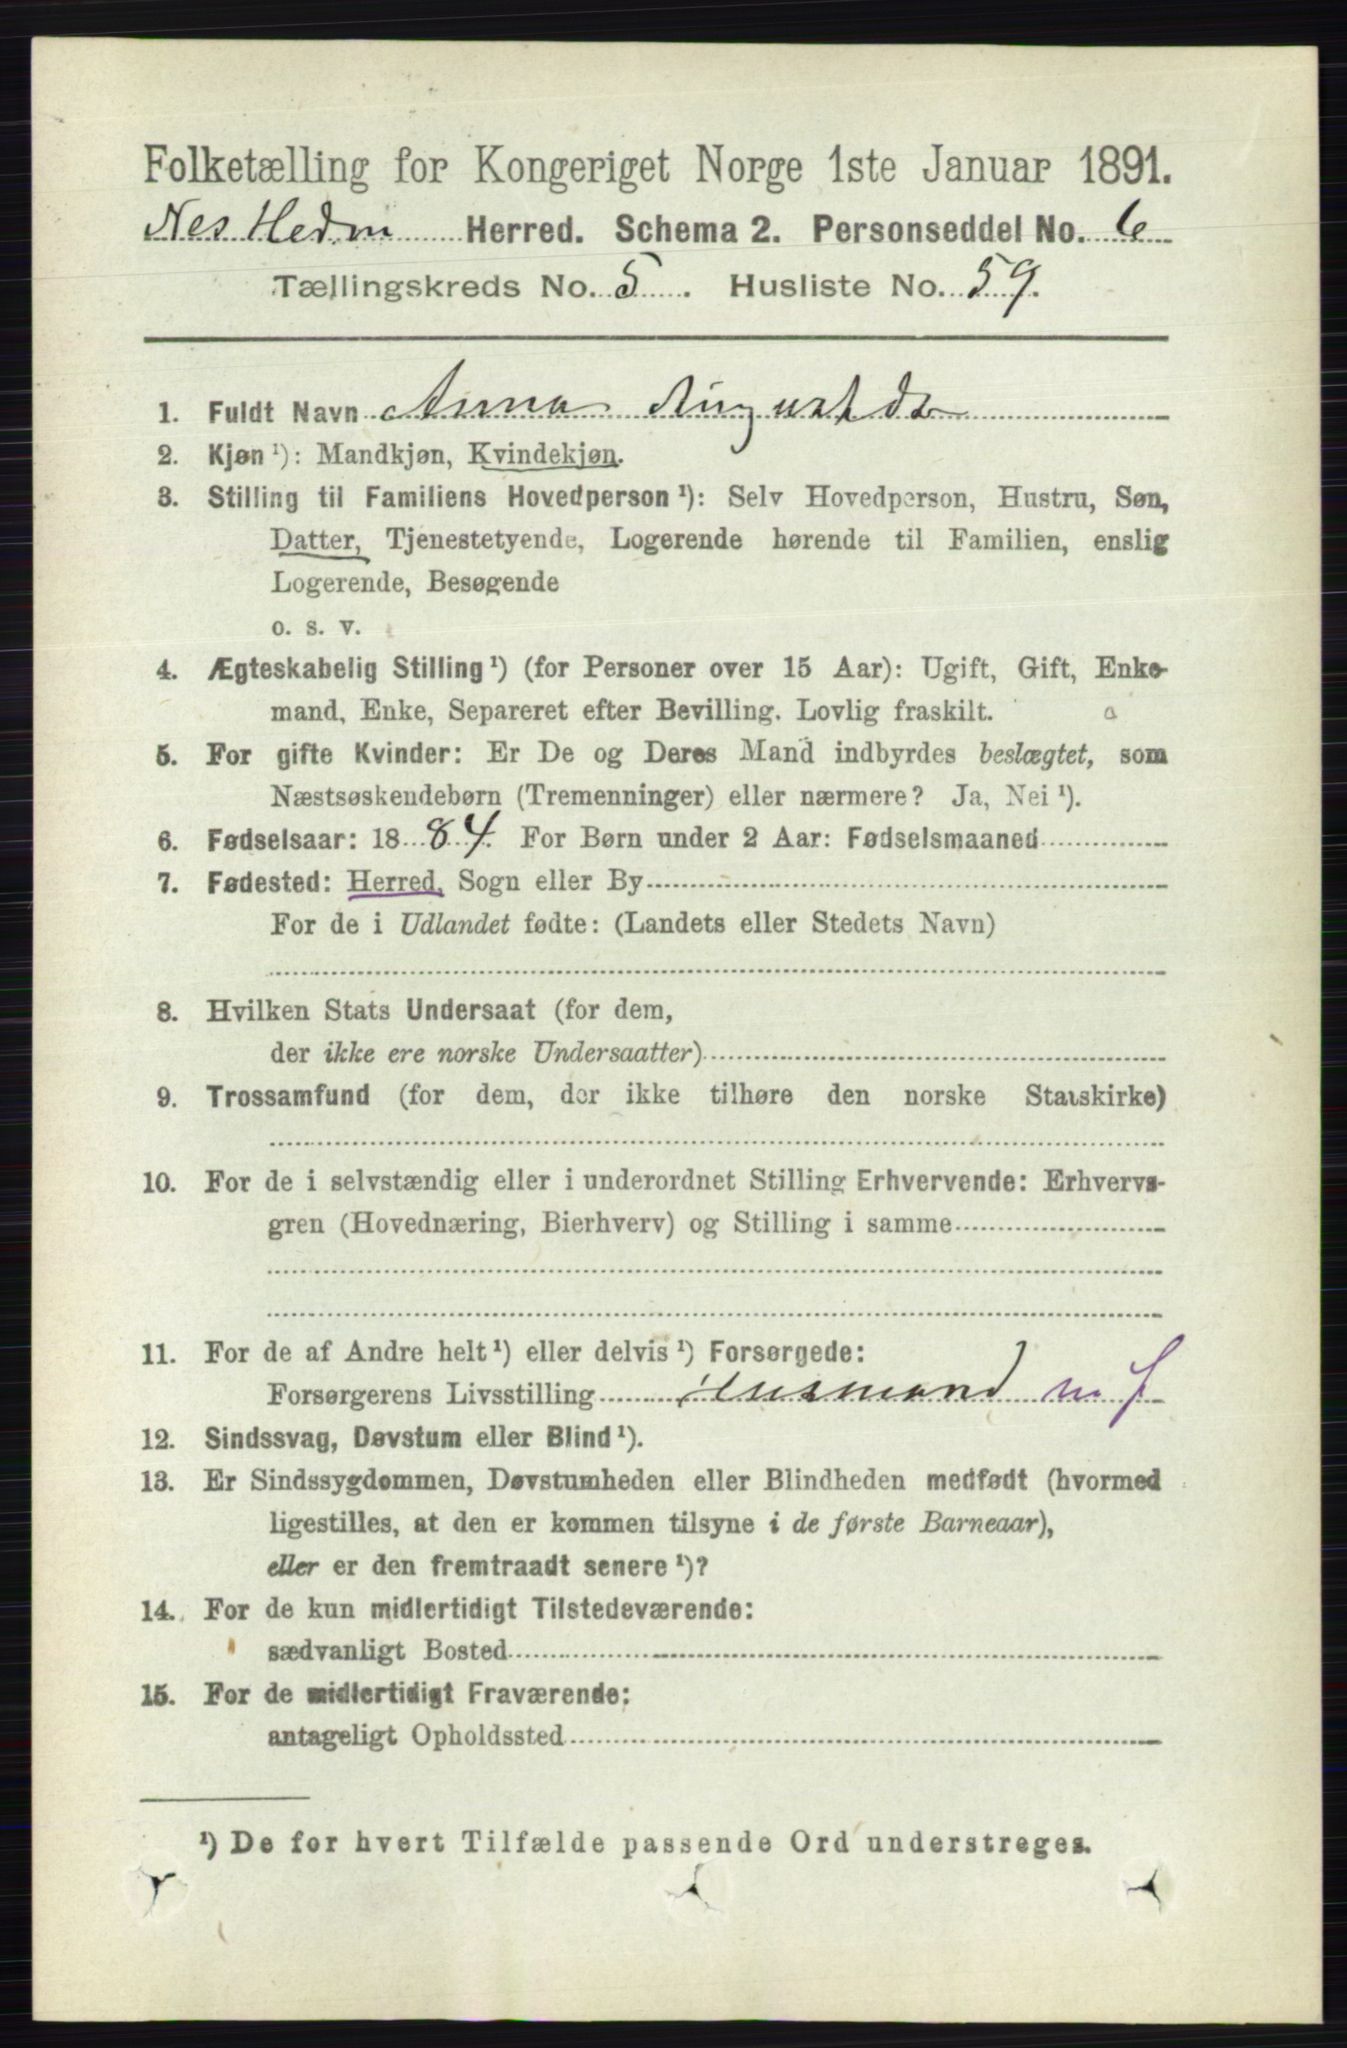 Folketælling for Kongeriget Norge 1ste Januar 1891.
Nes Hedm Herred. Schema 2. Personseddel No. 6
Tællingskreds No. 5. Husliste No. 59.
1. Fuldt Navn Anna
2. Kjøn ¹): Mandkjøn, Kvindekjøn.
3. Stilling til Familiens Hovedperson ¹): Selv Hovedperson, Hustru, Søn,
Datter, Tjenestetyende, Logerende hørende til Familien, enslig
Logerende, Besøgende
o. s. v.
4. Ægteskabelig Stilling ¹) (for Personer over 15 Aar): Ugift, Gift, Enke-
mand, Enke, Separeret efter Bevilling. Lovlig fraskilt.
5. For gifte Kvinder: Er De og Deres Mand indbyrdes beslægtet, som
Næstsøskendebørn (Tremenninger) eller nærmere? Ja, Nei ¹).
6. Fødselsaar: 1884. For Børn under 2 Aar: Fødselsmaaned
7. Fødested: Herred, Sogn eller By
For de i Udlandet fødte: (Landets eller Stedets Navn)
8. Hvilken Stats Undersaat (for dem,
der ikke ere norske Undersaatter)
9. Trossamfund (for dem, der ikke tilhøre den norske Statskirke)
10. For de i selvstændig eller i underordnet Stilling Erhvervende: Erhvervs-
gren (Hovednæring, Bierhverv) og Stilling i samme
11. For de af Andre helt ¹) eller delvis ¹) Forsørgede:
Forsørgerens Livsstilling Husmand m J
12. Sindssvag, Døvstum eller Blind ¹).
13. Er Sindssygdommen, Døvstumheden eller Blindheden medfødt (hvormed
ligestilles, at den er kommen tilsyne i de første Barneaar),
eller er den fremtraadt senere ¹)?
14. For de kun midlertidigt Tilstedeværende:
sædvanligt Bosted
15. For de midlertidigt Fraværende:
antageligt Opholdssted
¹) De for hvert Tilfælde passende Ord understreges.